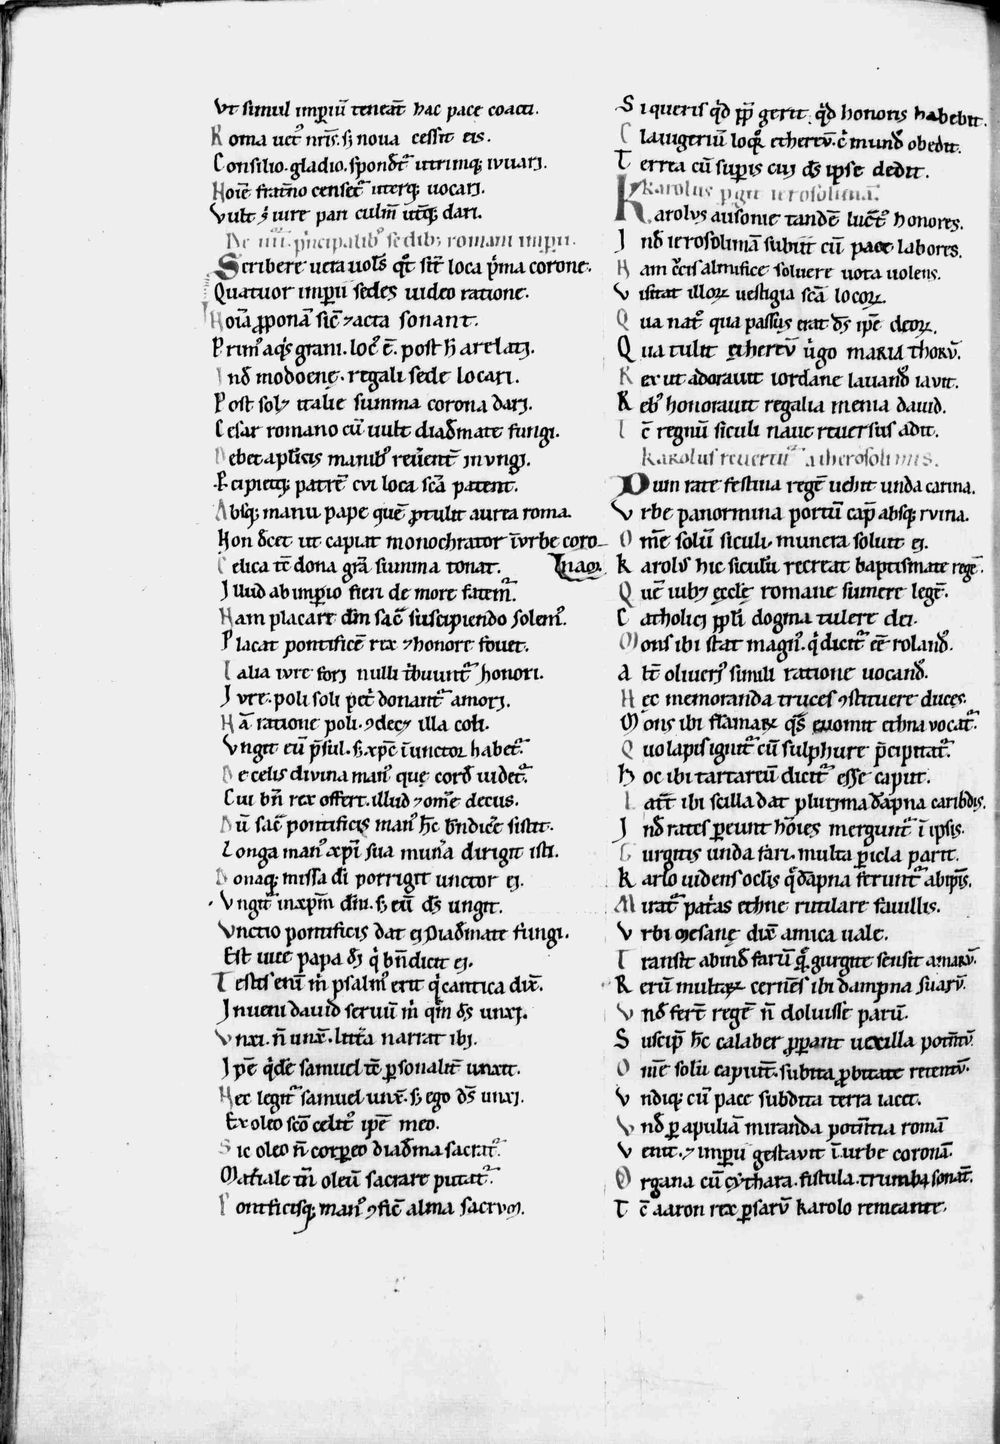 Vt simul imꝑiũ teneãt hac pace coacti.
Roma uetꝰ nr̃is. sꝫ noua cessit eis.
Consilio. gladio. spondẽtᷣ utrimqꝫ iuuarj.
Noĩe frat̃no censetᷣ uterqꝫ uocarj.
Vult ⁊ iure pari culm̃ utriqꝫ dari.
De iiiiᷣ. pⁱncipalibꝰ sedibꝫ romani imperii.
Scribere uera uol̃s qᷣ st̃t loca pⁱma corone.
Quatuor imꝑii sedes uideo ratione.
Noĩa ꝓponã sic̃ ⁊ acta sonant.
Primꝰ aqⁱs grani. locꝰ ẽ. post h̃ arelatj.
Inð modoenę. regali sede locari.
Post solꝫ italie summa corona darj.
Cesar romano cũ uult diad̃mate fungi.
Debet apl̃icis manibꝰ reu̾ent̾ inungi.
Pcipietqꝫ patrẽ cui loca sc̃a patent.
Absqꝫ manu pape quẽ ꝓtulit aurea roma.
Non dec̾et ut capiat monochrator ĩ urbe coro-
Celica tc̃ dona gr̃a summa tonat. nam.
Illud ab imꝑio fieri de more fatemᷣ.
Nam placare dm̃ sac̃ suscipiendo solemꝰ.
Placat pontificẽ rex ⁊ honore fouet.
Talia iure forj nulli tⁱbuuntᷣ honori.
Iure. poli soli pet̾ donantᷣ amorj.
Nã ratione poli. ⁊ decꝫ illa coli.
Vngit eũ pⁱsul. sꝫ xp̃c ĩunctor habetᷣ.
De celis diuina manꝰ que cord̾ uidetᷣ.
Cui bñ rex offert. illud ⁊ om̃e decus.
Dũ sac̃ pontificis manꝰ h̃c bñdic̾e sistit.
Longa manꝰ xp̃i sua mun̾a dirigit isti.
Donaqꝫ missa di porrigit unctor ej.
Vngitᷣ in xp̃m dm̃. sꝫ eũ ds̃ ungit.
Vnctio pontificis dat ej diad̃mate fungi.
Est uice papa di qⁱ bñdicit ej.
Testis enĩ m̃ psalmꝰ erit qⁱ cantica dix̃.
Inueni dauid seruũ m̃ qm̃ ds̃ unxj.
Vnxi. ñ unx̃. litt̃a narrat ibj.
Ip̃e qⁱde samuel tc̃ ꝑsonalit̾ unxit.
Nec legitᷣ samuel unx̃. sꝫ ego ds̃ unxj.
Ex oleo sc̃o celitꝰ ip̃e meo.
Sic oleo ñ corꝑeo diad̃ma sacratᷣ.
Mat̾iale tñ oleũ sacrare putatᷣ.
Pontificisqꝫ manꝰ ⁊ fic̃ alma sacrum.
Si queris qᷣd pp̃ gerit. qᷣd honoris habebit.
Clauigeriũ loqᷣ ethereũ. cⁱ mundꝰ obedit.
Terrea cũ suꝑis cui ds̃ ipse dedit.
Karolus ꝑgit ierosolimã.
Karolus ausonie tandẽ luctꝰ honores.
Inð ierosolimã subiit cũ pace labores.
Nam cc̃is almifice soluere uota uolens.
Visitat illorꝝ uestigia scã locorꝝ.
Qua natꝰ qua passus erat ds̃ ip̃e deorꝝ.
Qua tulit ethereũ uⁱgo maria thorũ.
Rex ut adorauit iordane lauandꝰ iauit.
Rebꝰ honorauit regalia menia dauid.
Tc̃ regnũ siculi naue reuersus adit.
Karolus reuertitᷣ a iherosolimis.
Dum rate festiua regẽ uehit unda carina.
Vrbe panormina portũ cap̃ absqꝫ ruina.
Om̃e solũ siculi munera soluit ej.
Karolus hic siculũ recreat baptismate regẽ.
Quẽ iubꝫ ęccl̃ę romane sumere legẽ.
Catholici ppl̃i dogma tulere dei.
Mons ibi stat magnꝰ. qⁱ dicitᷣ ee̾ rolandꝰ.
Alt̾ oliuerꝰ simili ratione uocandꝰ.
Hec memoranda truces ⁊stituere duces.
Mons ibi flamarꝝ qs̃ euomit ethna uocatᷣ.
Quo lapis ignitᷣ cũ sulphure p̃cipitatᷣ.
Hoc ibi tartareũ dicitᷣ esse caput.
Lat̾t ibi scilla dat plurima dãpna caribdis.
Inð rates ꝑeunt hõies merguntᷣ ĩ ipsis.
Gurgitis unda fari. multa ꝑicla parit.
Karlo uidens ocl̃is qᷣ dãpna feruntᷣ ab ip̃is.
Miratᷣ pat̾as ethne rutilare fauillis.
Vrbi mesanę dix̃ amica uale.
Transit abinð farũ qᷣ gurgite sensit amarũ.
Rerũ multarꝝ cernẽs ibi dampna suarũ.
Vnð fert̾ regẽ ñ doluisse parũ.
Suscip̃ h̃c calaber ꝓꝑant uexilla potent̾ũ.
Om̃e solũ capiunt̾. subita ꝓbitate recentũ.
Vndiqꝫ cũ pace subdita terra iacet.
Vnð ꝑ apuliã miranda potent̾ia romã
Venit. ⁊ imꝑii gestauit ĩ urbe coronã.
Organa cũ cythara. fistula. trumba sonãt.
Tc̃ aaron rex ꝑsarũ karolo remeante.